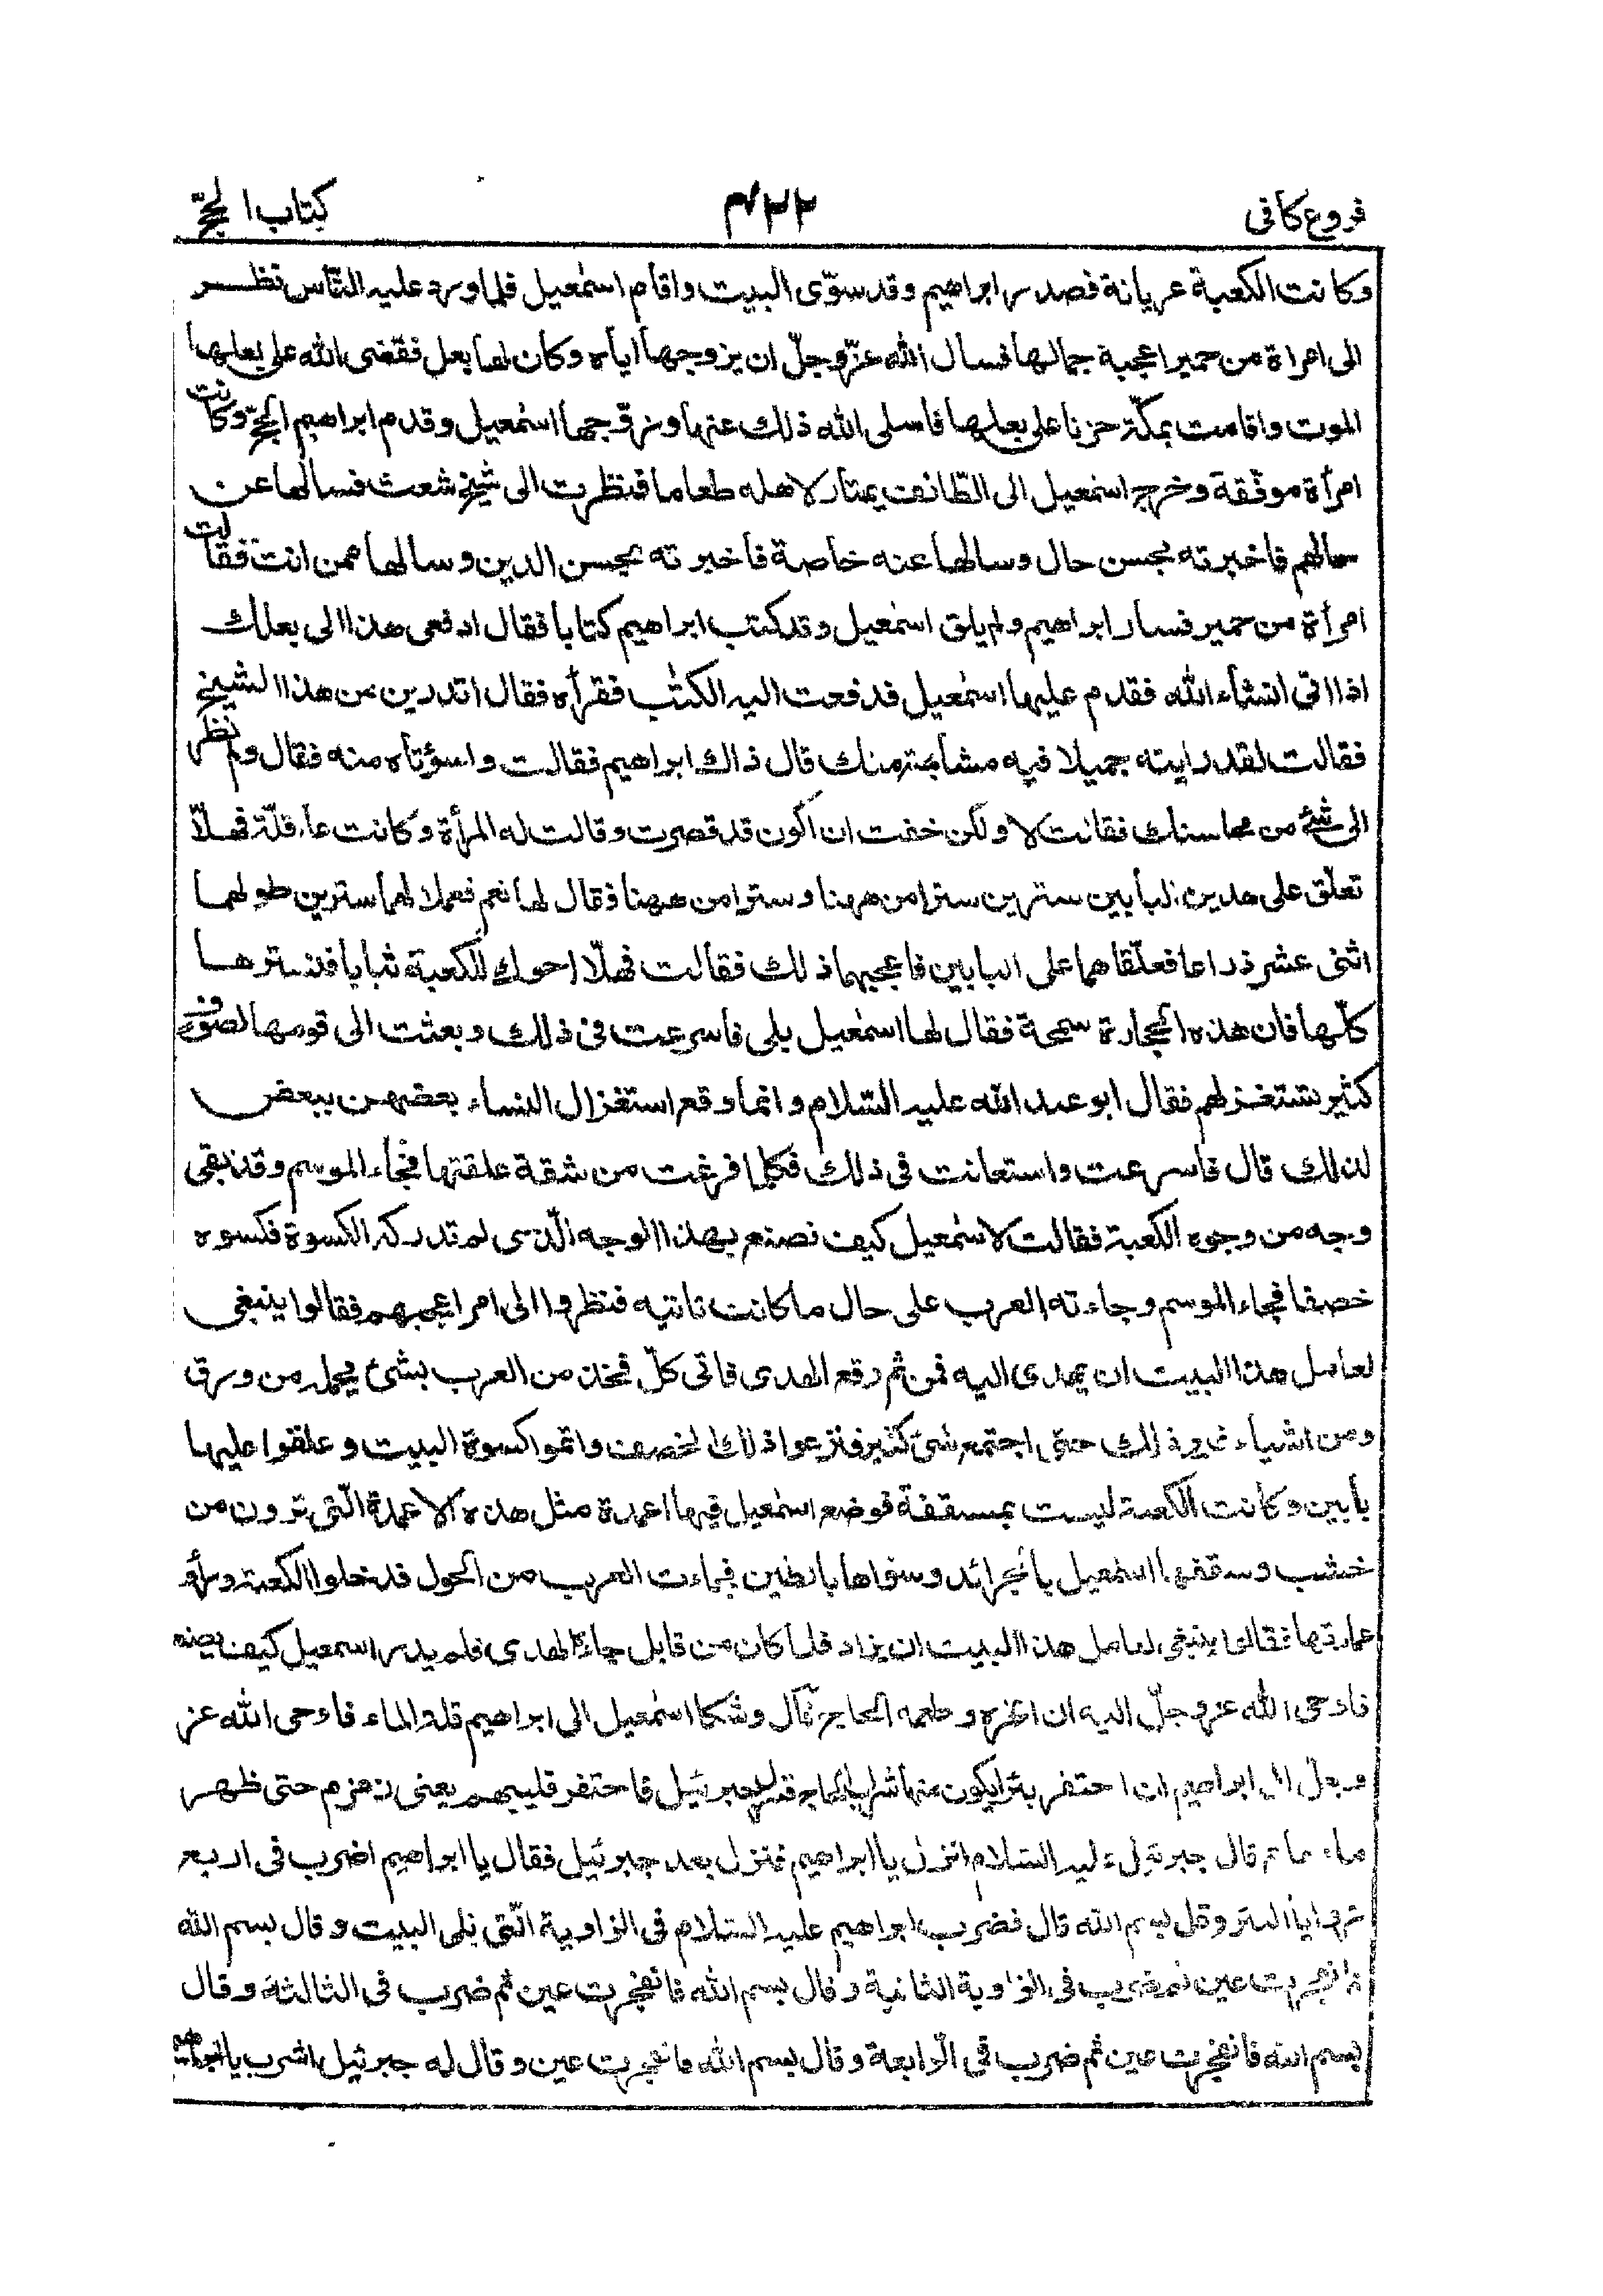 فروع كافى ٤٢٢ كتاب الحجّ
وكانت الكعبة عريانة فصدر ابراهيم وقد سوّى البيت واقام اسمٰعيل فلما ورد عليه النّاس نظر
الى امراة من حمير اعجبه جمالها فسال الله عزّوجلّ ان يزوجها اياه وكان لها بعل فقضى الله على بعلها
الموت واقامت بمكّة حزنا على بعلها فاسلى الله ذلك عنها وزوّجها اسمٰعيل وقدم ابراهيم الحجّ وكانت
امرأة موفّقة وخرج اسمٰعيل الى الطّائف يمتار لاهله طعاما فنظرت الى شيخ شعث فسالها عن
حالهم فاخبرته بحسن حال وسالها عنه خاصة فاخبرته بحسن الدين وسالها ممن انت فقالت
امرأة من حمير فسار ابراهيم ولم يلق اسمٰعيل وقد كتب ابراهيم كتابا فقال ادفعى هذا الى بعلك
اذا اتى انشاء الله فقدم عليها اسمٰعيل فدفعت اليه الكتٰب فقرأه فقال اتدرين من هذا الشيخ
فقالت لقد رايته جميلا فيه مشابهة منك قال ذاك ابراهيم فقالت واسؤتاه منه فقال ولم نظر
الى شئ من محاسنك فقالت لا ولكن خفت ان اكون قد قصرت وقالت له المرأة وكانت عاقلة فهلّا
تعلّق على هذين البابين سترين سترا من ههنا وسترا من ههنا فقال لها نعم فعملا لهما سترين طولهما
اثنى عشر ذراعا فعلّقاهما على البابين فاعجبهما ذلك فقالت فهلّا احوك للكعبة ثيابا فنسترها
كلّها فان هذه الحجارة سمجة فقال لها اسمٰعيل بلى فاسرعت فى ذلك وبعثت الى قومها لصوف
كثير تستغزلهم فقال ابو عبد الله عليه السّلام وانما وقع استغزال النساء بعضهن ببعض
لذلك قال فاسرعت واستعانت فى ذلك فكلما فرغت من شقة علقتها فجاء الموسم وقد بقى
وجه من وجوه الكعبة فقالت لاسمٰعيل كيف نصنع بهذا الوجه الّذى لم تدركه الكسوة فكسوه
خصفا فجاء الموسم وجاءته العرب على حال ما كانت تاتيه فنظروا الى امر اعجبهم فقالوا ينبغى
لعامل هذا البيت ان يهدى اليه فمن ثم وقع الهدى فاتى كلّ فخذ من العرب بشئ يحمله من ورق
ومن اشياء غير ذلك حتى اجتمع شئ كثير فنزعوا ذلك الخصف واتموا كسوة البيت وعلقوا عليها
بابين وكانت الكعبة ليست بمسقفة فوضع اسمٰعيل فيها اعمدة مثل هذه الاعمدة الّتى ترون من
خشب وسقفها اسمٰعيل بالجرائد وسواها بالطين فجاءت العرب من الحول فدخلوا الكعبة ورأو
عمارتها فقالوا ينبغى لعامل هذا البيت ان يزاد فلما كان من قابل جاءه الهدى فلم يدر اسمعيل كيف يصنع
فاوحى الله عزوجلّ اليه ان انحره وطعمه الحاج قال وشكا اسمٰعيل الى ابراهيم قلة الماء فاوحى الله عز
وجل الى ابراهيم ان احتفر بئرا يكون منها شراب الحاج فنزل جبرئيل فاحتفر قليبهم يعنى زمزم حتى ظهر
ماءها ثم قال جبرئيل عليه السّلام انزل يا ابراهيم فنزل بعد جبرئيل فقال يا ابراهيم اضرب فى اربع
زوايا البئر وقل بسم الله قال فضرب ابراهيم عليه السّلام فى الزاوية الّتى تلى البيت وقال بسم الله
فانفجرت عين ثم ضرب فى الزاوية الثانية وقال بسم الله فانفجرت عين ثم ضرب فى الثالثة وقال
بسم الله فانفجرت عين ثم ضرب فى الرّابعة وقال بسم الله فانفجرت عين وقال له جبرئيل اشرب يا ابراهيم